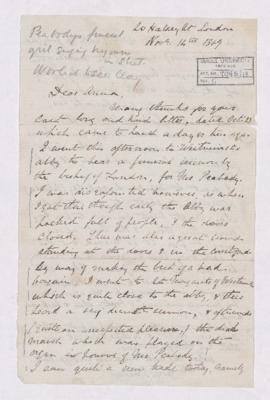 Peabody's funeral
girl singing hymn
in Street
Nov. 14th 1869
Dear Anna,
Many thanks for your
last long and kind letter, dated Oct
which came to hand a day or two ago.
I went this afternoon to Westminster
abby to hear a funeral sermon by
the bishop of London, for Mr. Peabody.
I was disappointed however, as when
I got there though early the Abby was
packed full of people, & the doors
closed. There was also a great crowd
standing at the doors & in the
By way of making the best of a bad
bargain I went to St Margarets of Westminster
which is quite close to the abby, & there
heard a very decent sermon, & afterwards
(quite an unexpected pleasure) the dead
march which was played on the
organ in honour of Mr. Peabody.
I saw quite a new trade today, namely